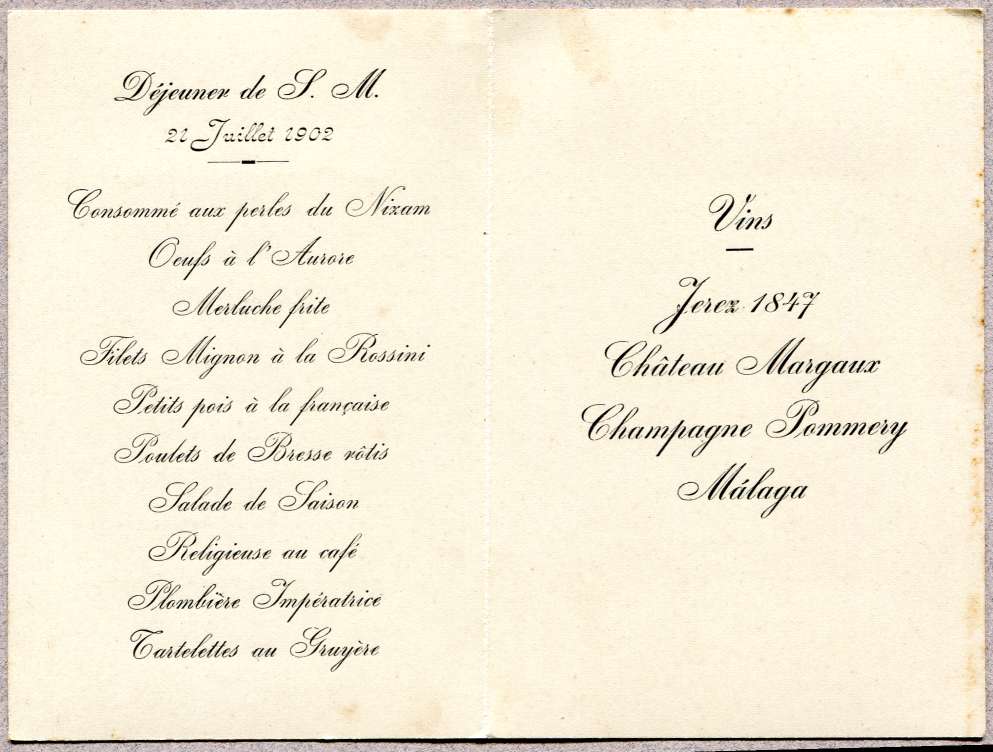 Déjeuner de S. M.
21 Juillet 1902
Consommé aux perles du Nizam
Oeufs à l'Aurore
Merluche frite
Filets Mignon à la Rossini
Petits pois à la française
Poulets de Bresse rôtis
Salade de Saison
Religieuse au café
Plombière Impératrice
Tartelettes au Gruyère
Vins
Jerez 1847
Château Margaux
Champagne Pommery
Málaga